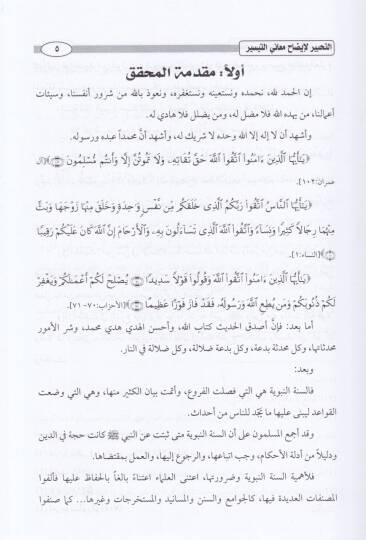 التحبير لإيضاح معاني التيسير
٥
أولاً: مقدمة المحقق
إن الحمد لله، نحمده ونستعينه ونستغفره، ونعوذ بالله من شرور أنفسنا، وسيئات
أعمالنا، من يهده الله فلا مضل له، ومن يضلل فلا هادي له.
وأشهد أن لا إله إلا الله وحده لا شريك له، وأشهد أنَّ محمداً عبده ورسوله.
﴿يَٰٓأَيُّهَا ٱلَّذِينَ ءَامَنُوا۟ ٱتَّقُوا۟ ٱللَّهَ حَقَّ تُقَاتِهِۦ وَلَا تَمُوتُنَّ إِلَّا وَأَنتُم مُّسْلِمُونَ ﴿١٠٢﴾﴾ [آل
عمران:١٠٢].
﴿يَٰٓأَيُّهَا ٱلنَّاسُ ٱتَّقُوا۟ رَبَّكُمُ ٱلَّذِى خَلَقَكُم مِّن نَّفْسٍ وَٰحِدَةٍ وَخَلَقَ مِنْهَا زَوْجَهَا وَبَثَّ
مِنْهُمَا رِجَالًا كَثِيرًا وَنِسَآءً وَٱتَّقُوا۟ ٱللَّهَ ٱلَّذِى تَسَآءَلُونَ بِهِۦ وَٱلْأَرْحَامَ إِنَّ ٱللَّهَ كَانَ عَلَيْكُمْ رَقِيبًا
﴿١﴾﴾ [النساء:١].
﴿يَٰٓأَيُّهَا ٱلَّذِينَ ءَامَنُوا۟ ٱتَّقُوا۟ ٱللَّهَ وَقُولُوا۟ قَوْلًا سَدِيدًا ﴿٧٠﴾ يُصْلِحْ لَكُمْ أَعْمَٰلَكُمْ وَيَغْفِرْ
لَكُمْ ذُنُوبَكُمْ وَمَن يُطِعِ ٱللَّهَ وَرَسُولَهُۥ فَقَدْ فَازَ فَوْزًا عَظِيمًا ﴿٧١﴾﴾ [الأحزاب:٧٠-٧١].
أما بعد: فإنَّ أصدق الحديث كتاب الله، وأحسن الهدي هدي محمد، وشر الأمور
محدثاتها، وكل محدثة بدعة، وكل بدعة ضلالة، وكل ضلالة في النار.
وبعد:
فالسنة النبوية هي التي فصلت الفروع، وأتمت بيان الكثير منها، وهي التي وضعت
القواعد ليبنى عليها ما يجدّ للناس من أحداث.
وقد أجمع المسلمون على أن السنة النبوية متى ثبتت عن النبي ﷺ كانت حجة في الدين
ودليلاً من أدلة الأحكام، وجب اتباعها، والرجوع إليها، والعمل بمقتضاها.
فلأهمية السنة النبوية وضرورتها، اعتنى العلماء اعتناءً بالغاً بالحفاظ عليها فألفوا
المصنفات العديدة فيها، كالجوامع والسنن والمسانيد والمستخرجات وغيرها... كما صنفوا